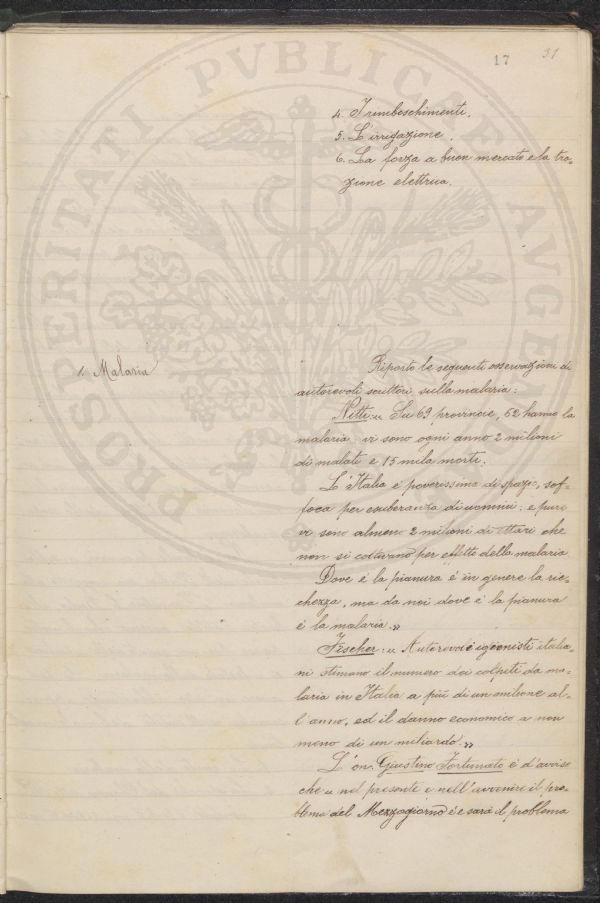 17 31
4. I rimboschimenti.
5. L'irrigazione.
6. La forza a buon mercato e la tra-
zione elettrica.
PROSPERITATI PVBLICAE AVGENDAE
1. Malaria
Riporto le seguenti osservazioni di
autorevoli scrittori sulla malaria:
Nitti: « Su 69 provincie, 62 hanno la
malaria vi sono ogni anno 2 milioni
di malati e 15 mila morti.
L'Italia è poverissima di spazio, sof-
foca per esuberanza di uomini: e pure
vi sono almeno 2 milioni di ettari che
non si coltivano per effetto della malaria
Dove è la pianura è in genere la ric-
chezza, ma da noi dove è la pianura
è la malaria.»
Fischer: « Autorevoli igienisti italia-
ni stimano il numero dei colpiti da ma-
laria in Italia a più di un milione al-
l'anno, ed il danno economico a non
meno di un miliardo.»
L'on. Giustino Fortunato è d'avviso
che « nel presente e nell'avvenire il pro-
blema del Mezzogiorno è e sarà il problema